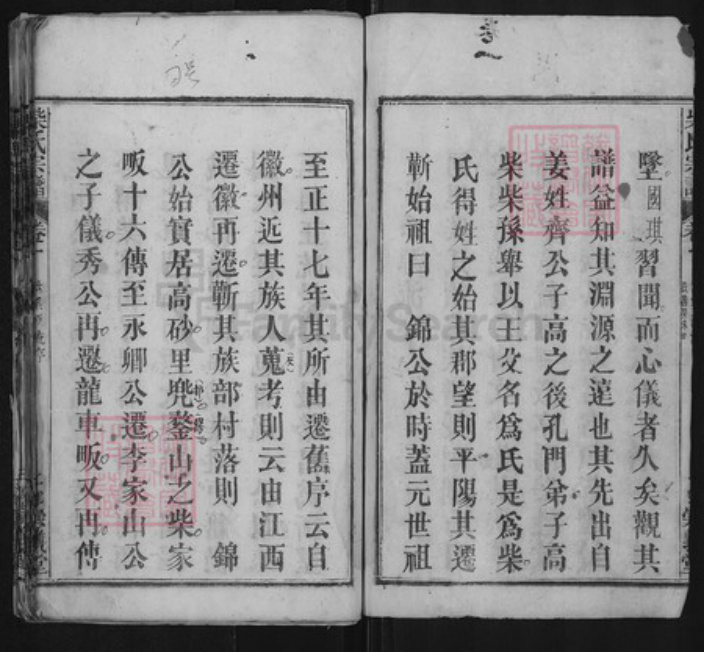 墜國琪習聞而心儀者久矣觀其
譜益知其淵源之遠也其先出自
姜姓齊公子高之後孔門弟子高
柴柴孫舉以王父名爲氏是爲柴
氏得姓之始其郡望則平陽其遷
蘄始祖曰 錦公於時蓋元世祖
至正十七年其所由遷舊序云自
徽州近其族人蒐考則云由江西
遷徽再遷蘄其族部村落則 錦
公始實居高砂里兠鍪山之柴家
畈十六傳至永卿公遷李家山公
之子儀秀公再遷龍車畈又再傳
柴氏宗譜
卷一
FamilySearch